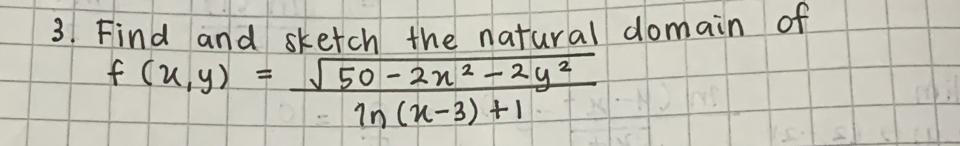 3. Find and sketch the natural domain of
f (x,y) = √50 - 2x² - 2y²
ln (x-3) + 1